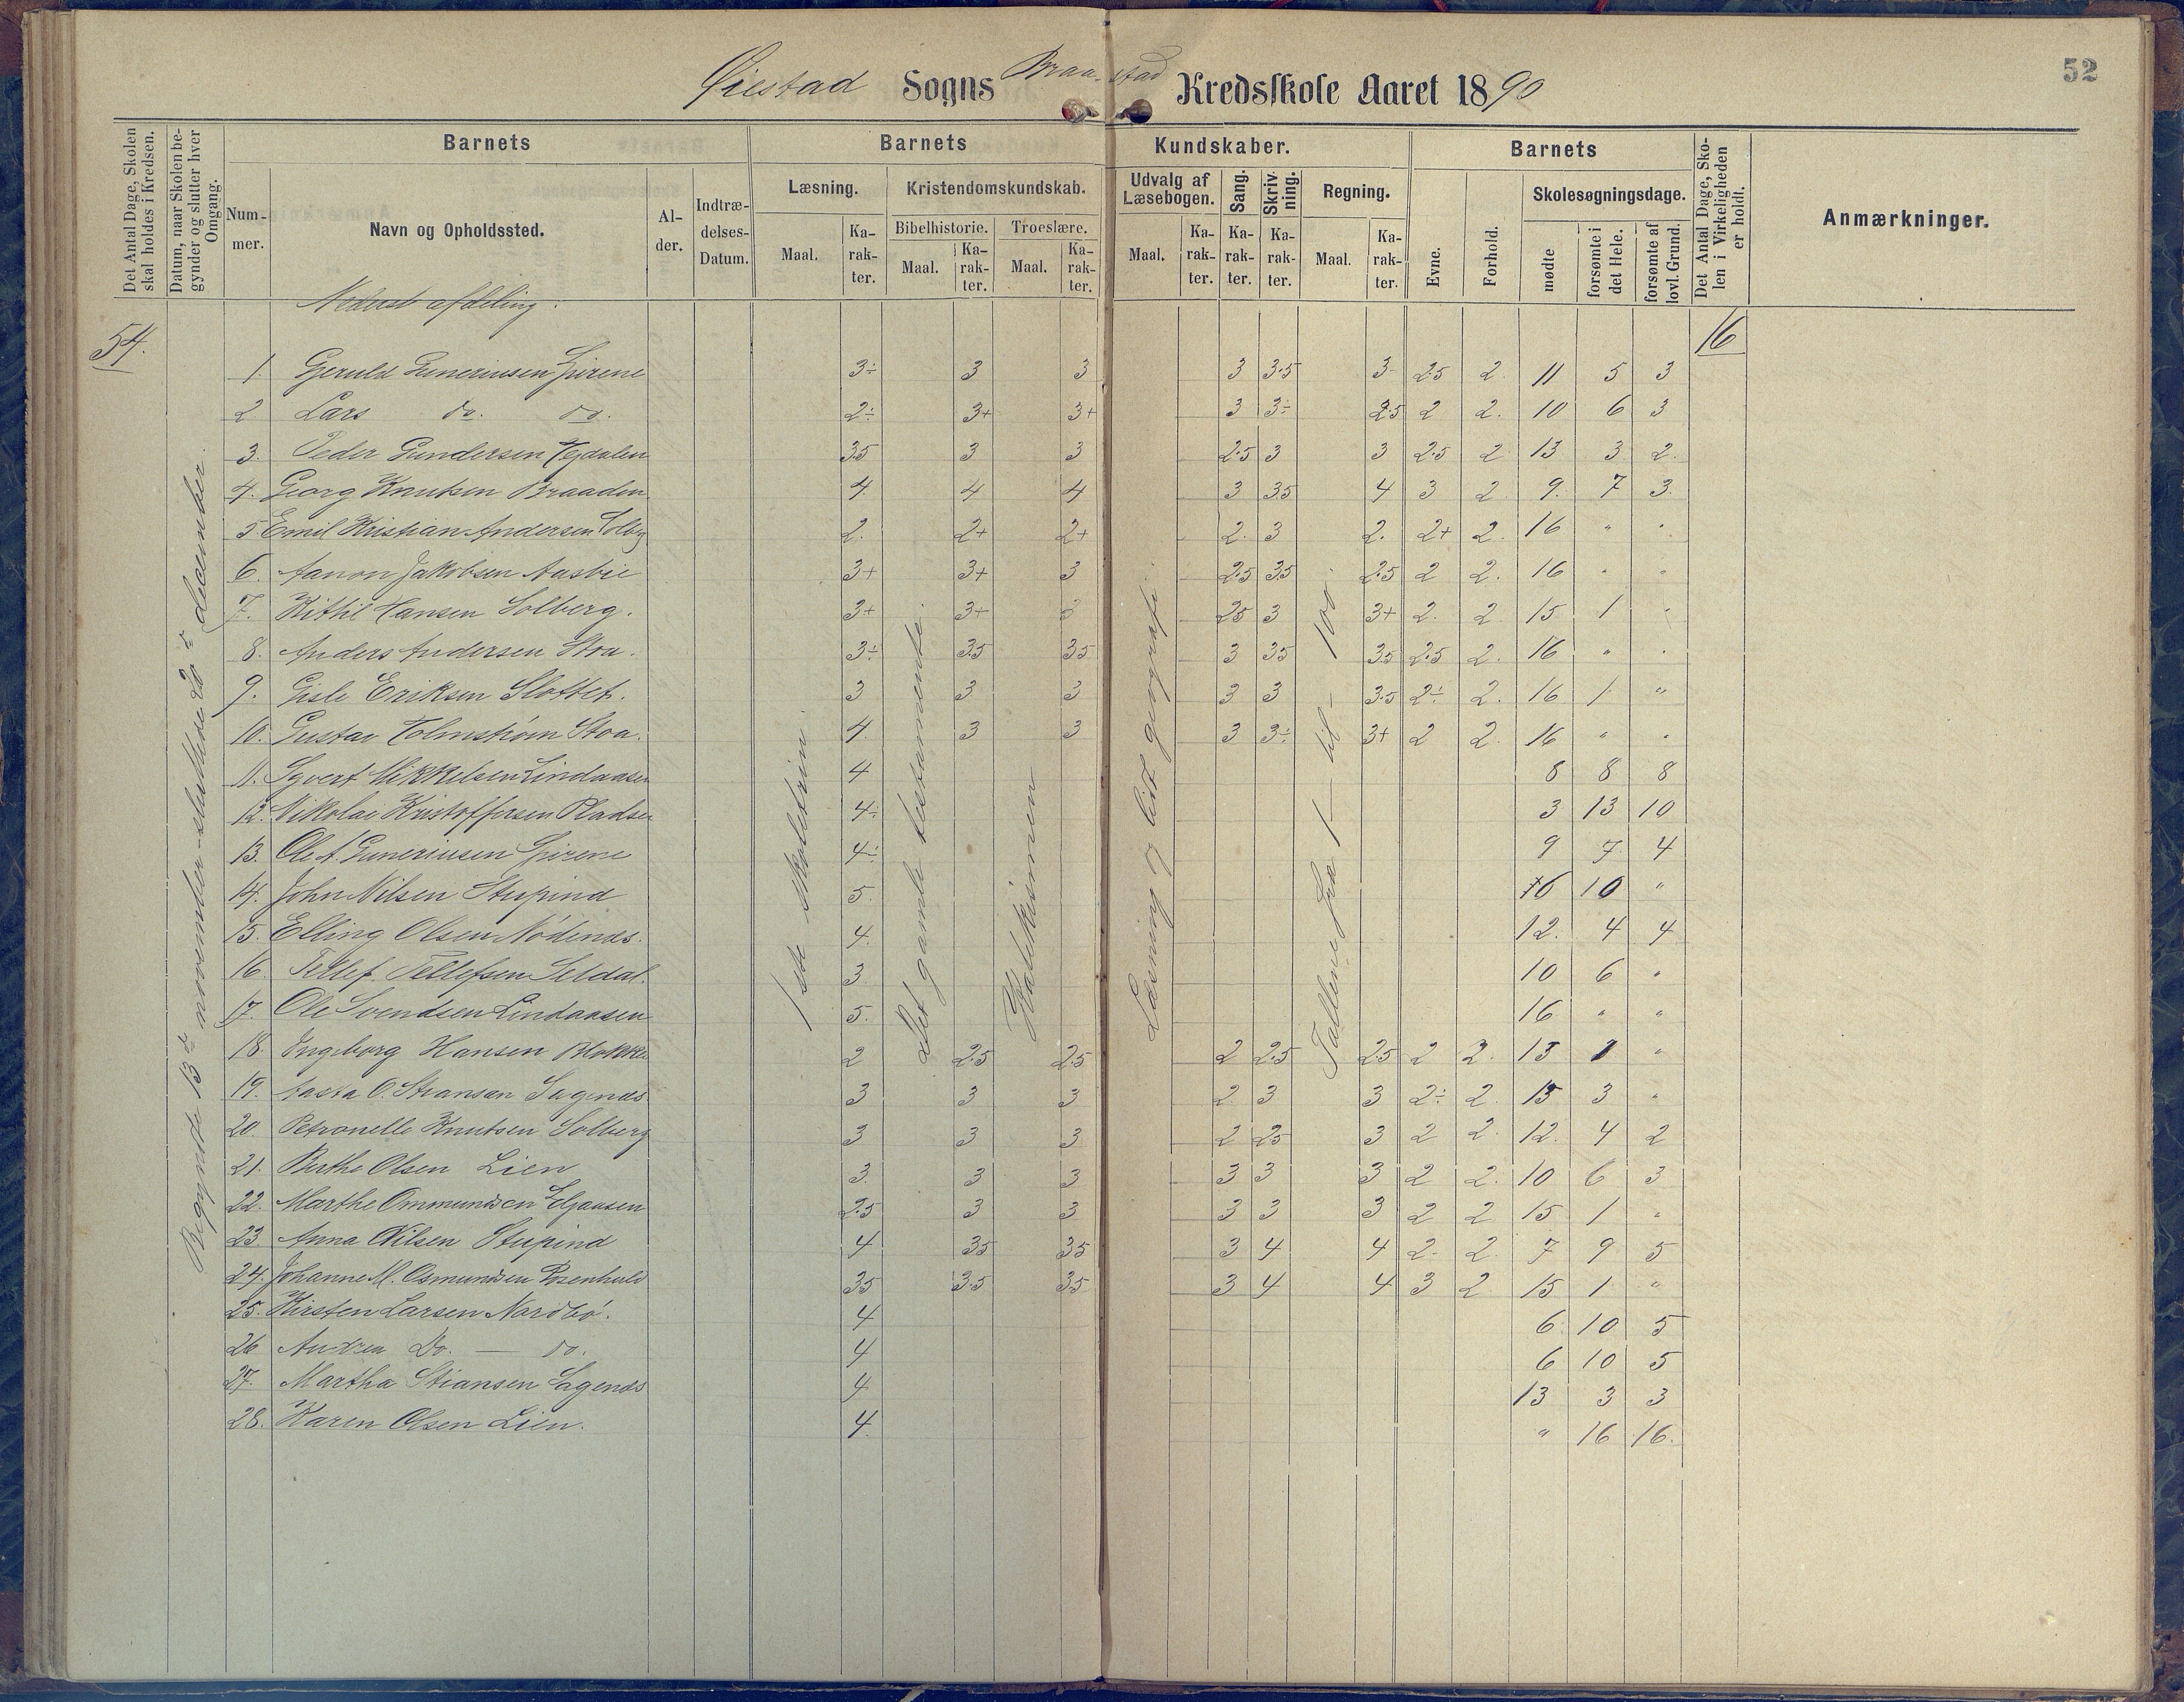 52
Øiestad Sogns Braa-stad Kredsskole Aaret 1890
Det Antal Dage, Skolen skal holdes i Kredsen.
Datum, naar Skolen begynder og slutter hver Omgang.
Barnets
Nummer.
Navn og Opholdssted.
Alder.
Indtrædelses-Datum.
Barnets Kundskaber.
Læsning.
Maal.
Karakter.
Kristendomskundskab.
Bibelhistorie.
Maal.
Karakter.
Troeslære.
Maal.
Karakter.
Udvalg af Læsebogen.
Maal.
Karakter.
Sang.
Karakter.
Skrivning.
Karakter.
Regning.
Maal.
Karakter.
Barnets
Evne.
Forhold.
Skolesøgningsdage.
mødte
forsømte i det Hele.
forsømte af lovl. Grund.
Det Antal Dage, Skolen i Virkeligheden er holdt.
Anmærkninger.
Nederst afdeling.
54.
16
Begyndt 13de november - sluttede 20de december.
1ste skoletrin.
Det gamle testamente.
Katekismen
Læsning og lidt geografi.
Tallene fra 1 - til - 100.
1. Geruld Guneriusen Spirene 3÷ 3 3 3 3.5 3- 2.5 2 11 5 3
2 Lars do. do. 2÷ 3+ 3+ 3 3÷ 2.5 2 2. 10 6 3
3. Peder Gundersen Vegdalen 35 3 3 2.5 3 3 2.5 2 13 3 2.
4. Georg Knutsen Braaden 4. 4 4 3 35 4 3 2 9. 7 3.
5 Emil Kristian Andersen Solbg 2. 2+ 2+ 2. 3 2. 2+ 2. 16 " "
6. Aanon Jakobsen Aasbie 3+ 3+ 3 2.5 35 2.5 2 2. 16 " "
7. Kittil Hansen Solberg. 3+ 3+ 3 25 3 3+ 2. 2 15 1 "
8. Anders Andersen Stoa. 3÷ 35 35 3 35 35 2.5 2. 16 " "
9. Gisle Eriksen Slottet. 3 3 3 3 3 3.5 2÷ 2. 16 1 "
10. Gustav Holmstrøm Stoa. 4 3 3 3 3÷ 3+ 2 2 16 " "
11. Syvert Mikkelsen Lindaasen 4 8 8 8
12. Nikolai Kristoffersen Pladsen 4÷ 3 13 10
13. Ole A. Guneriusen Spirene 4÷ 9 7. 4
14. John Nilsen Stupind 5. 6 10 "
15. Elling Olsen Nødenæs. 4. 12. 4 4
16. Tellef Tellefsen Seldal. 3 10 6 "
17. Ole Svendsen Lindaasen 5. 16 " "
18. Ingeborg Hansen Blokken 2 2.5 2.5 2 2.5 2.5 2 2. 15 1 "
19. Aasta O. Stiansen Sagenæs 3 3 3 2 3 3 2÷ 2 13 3 "
20. Petronelle Knutsen Solberg 3 3 3 2 25 3 2 2 12. 4 2
21. Birthe Olsen Lien 3. 3 3 3 3 3 2 2. 10 6 3
22. Marthe Ommundsen Elgaasen 2.5 3 3 3 3 3 2 2 15 1 "
23. Anna Nilsen Stupind 4 35 35 3 4 4 2- 2 7 9 5
24. Johanne M. Osmundsen Rosenhuld 35 3.5 35 3 4 4 3 2 15 1 "
25. Kirsten Larsen Nordbø. 4 6 10 5
26 Andrea Do. — do. 4 6 10 5
27. Martha Stiansen Sagenæs 4 13 3 3
28. Karen Olsen Lien. 4. " 16 16.